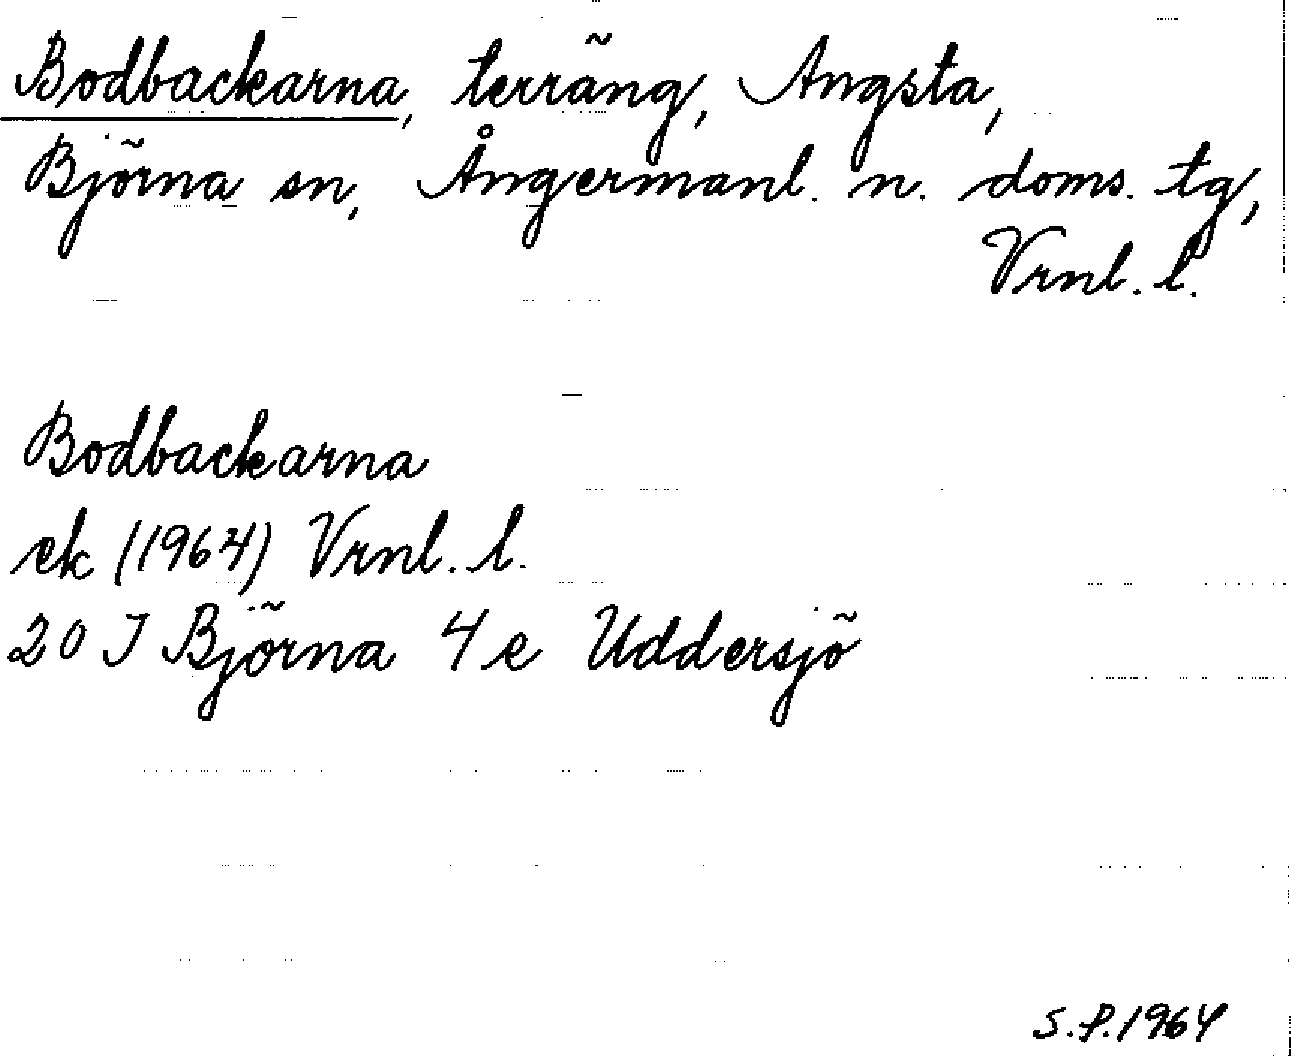 Bodbackarna, terräng, Angsta,
Björna sn, Ångermanl. n. doms. tg,
Vrnl. l.
Bodbackarna
ek (1964) Vrnl. l.
20 I Björna 4 e Uddersjö
S.P.1964